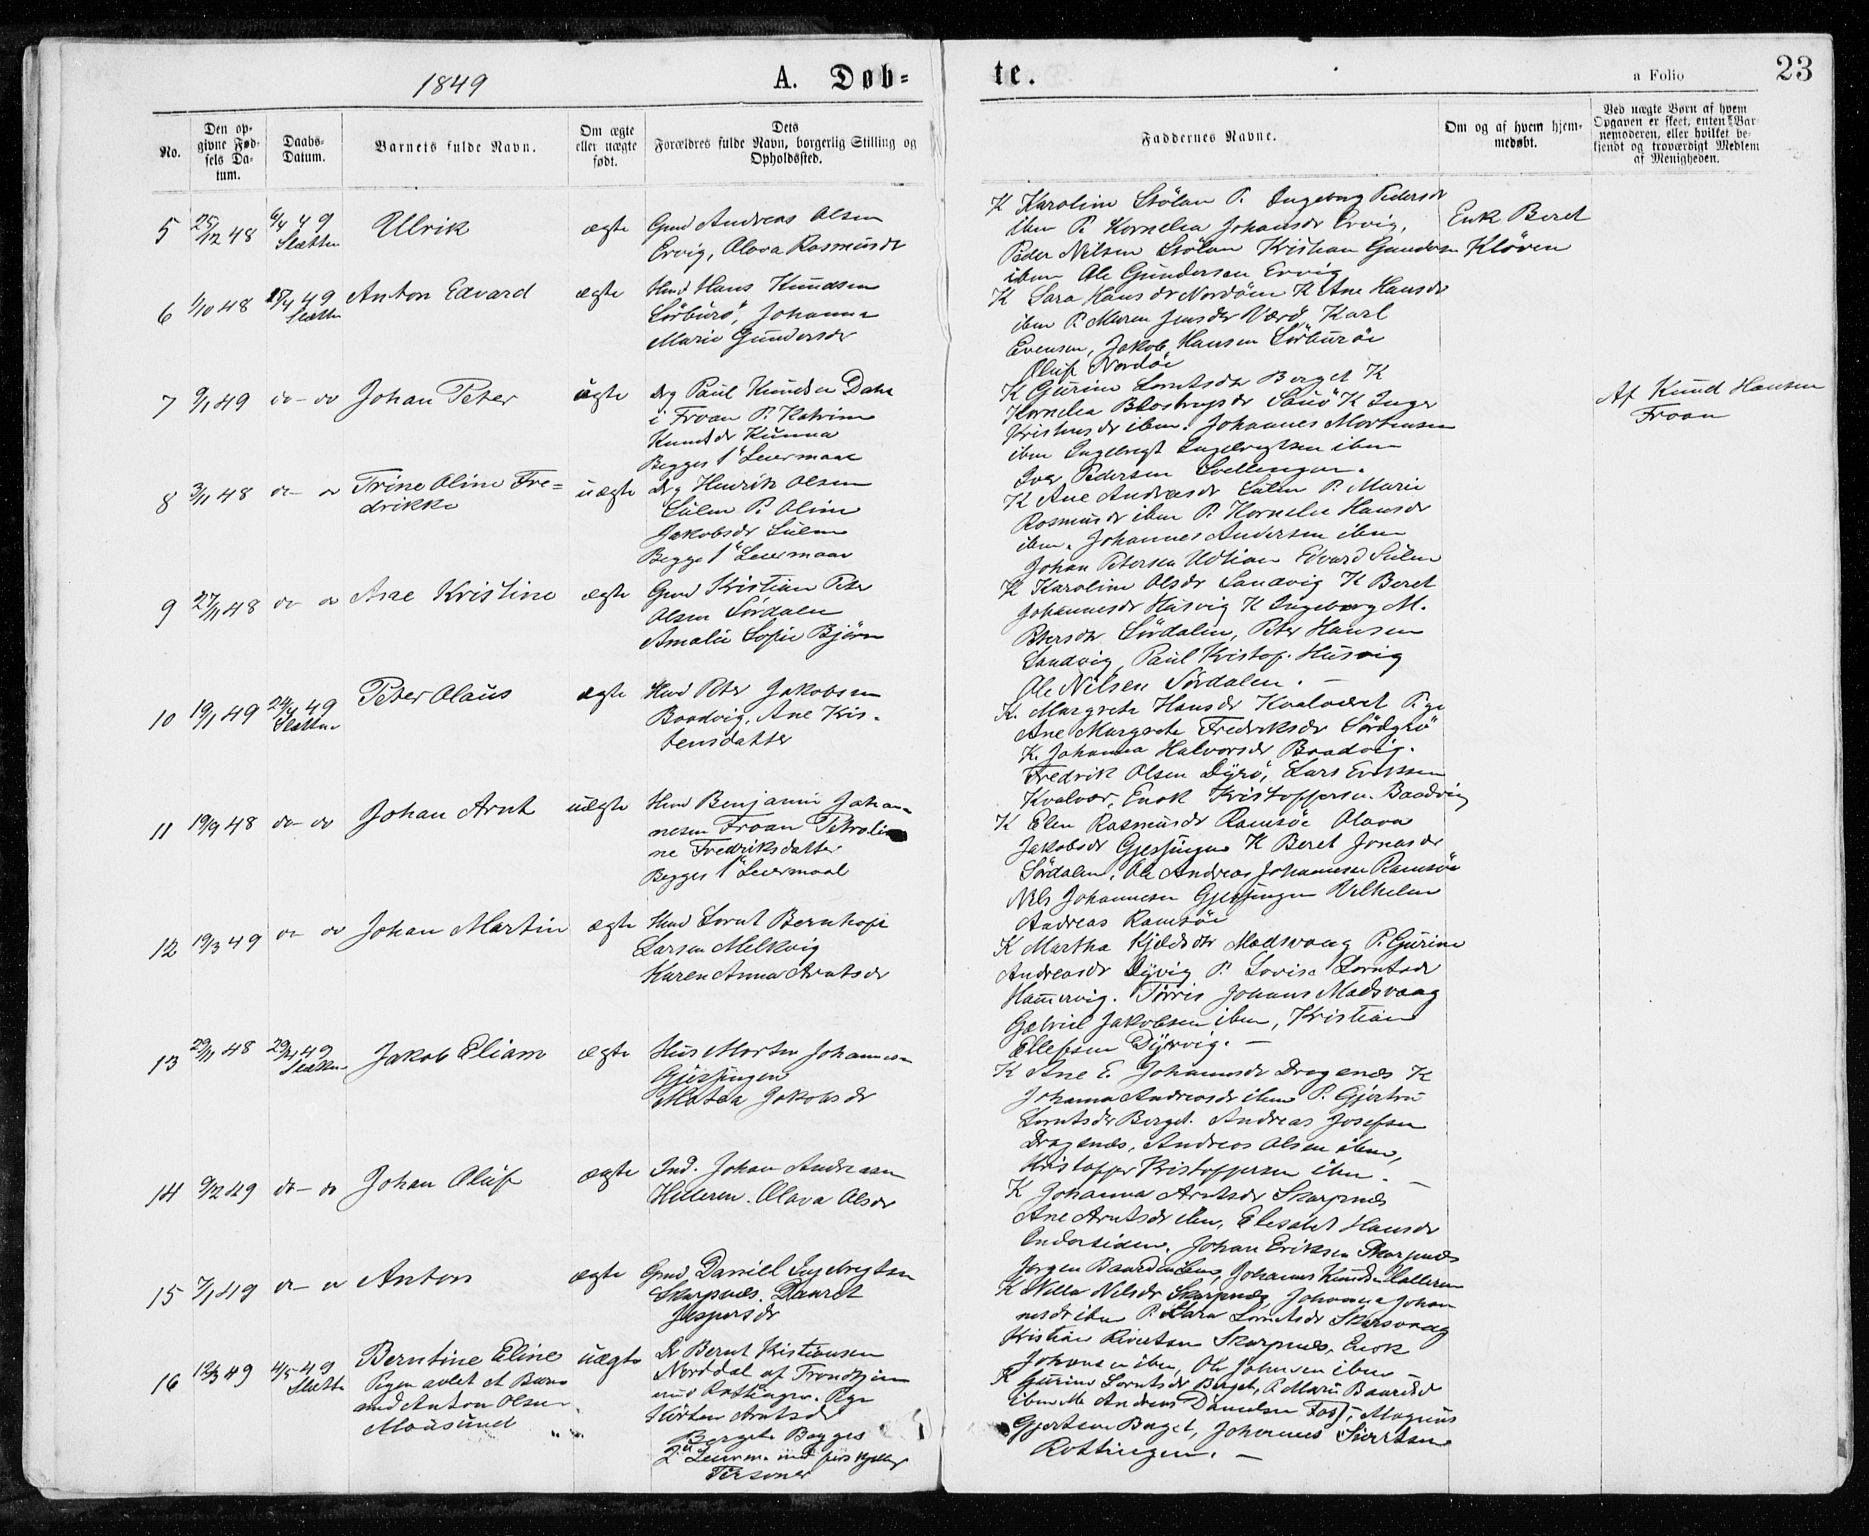 1849
A. Døb=
te.
a Folio
23
No.
Den op-
givne Fød-
sels Da-
tum.
Daabs-
Datum.
Barnets fulde Navn.
Om ægte
eller uægte
født.
Dets
Forældres fulde Navn, borgerlig Stilling og
Opholdssted.
Faddernes Navne.
Om og af hvem hjem-
medøbt.
Ved uægte Børn af hvem
Opgaven er skeet, enten Bar-
nemoderen, eller hvilket be-
kjendt og troværdigt Medlem
af Menigheden.
5 25/12 48 6/4 49
Slætten
Ulrik
ægte
Gmd Andreas Olsen
Ervig, Olava Rasmusdr
K Karoline Stölan P. Ingeborg Pedersdr
ibm P. Kornelia Johansdr Ervig,
Peder Nilsen Stölan Kristian Gunders
ibm Ole Gundersen Ervig
Enk Beret
Kløven
6 1/10 48
Slætten
Anton Edvard
ægte
Hmd Hans Knudsen
Sörburö, Johanna
Marie Gundersdr
K Sara Hansdr Nordöen K Ane Hansdr
ibm P. Maren Jensdr Værö, Karl
Evensen, Jakob Hansen Sörburöe
Oluf Nordöe
7 9/1 49 do - do
Johan Peter
uægte
Drg Paul Knudsen Dahl
i Froan P. Katrine
Knudsdr Kunna
Begges 1ste Leiermaal
K Gurine Lorntsdr Berget K
Kornelia Sauö K Inger
Kristensdr ibm. Johannes Mortensen
ibm Ingebregt Ingebregtsen ibm
Iver Pedersen Svellingen.
Af Knud Hansen
Froan
8 3/11 48 do - do
Trine Oline Fre=
drikke
uægte
Drg Henrik Olsen
Sulen P. Oline
Jakobsdr Sulen
Begge 1ste Leiermaal
K Ane Andreasdr Sulen P. Marie
Rasmusdr ibm P. Kornelia Hansdr
ibm. Johannes Andersen ibm
Johan Petersen Udtian Edvard Sulen
9 27/11 48 do - do
Ane Kristine
ægte
Gmd Kristian Peter
Olsen Sördalen
Amalie Sofie Bjørn
K Karoline Olsdr Sandvig K Beret
Johannesdr Husvig K Ingeborg M.
Petersdr Sördalen, Peter Hansen
Sandvig, Paul Kristof. Husvig
Ole Nilsen Sördalen. -
10 19/1 49 22/4 49
Slætten
Peter Olaus
ægte
Hmd Peter Jakobsen
Baadvig, Ane Kris-
tensdatter
K. Margrete Hansdr Kvalværet Pige
Ane Margrete Fredriksdr
K. Johanna Halvorsdr Baadvig.
Fredrik Olsen Dyrö, Lars Eriksen
Kvalvær, Enok Kristoffersen Baadvig
11 19/9 48 do - do
Johan Arnt
uægte
Hmd Benjamin Johan-
nesen Froan Petroli
ne Fredriksdatter
Begges 1ste Leiermaal
K Elen Rasmusdr Ramsöe Olava
Jakobsdr Gjessingen K Beret Jonasdr
Sördalen, Ole Andreas Johannesen Ramsöe
Nils Johannesen Gjessingen Vilhelm
Andreas Ramsöe
12 19/3 49 do - do
Johan Martin
ægte
Hmd Lornt Bernhoft
Larsen Melkvig
Karen Anna Arntsdr
K Martha Kjeldsdr Madsvaag P. Gurine
Andreasdr Dyrvig P. Lovise Lorntsdr
Hammervig. Tørris Johans Madsvaag
Gabriel Jakobsen ibm, Kristian
Ellefsen Dyrvig. -
13 29/11 48 29/4 49
Slætten
Jakob Eliam
ægte
Hus Morten Johannesen
Gjessingen
Matea Jakobsdr
K Ane E. Johannesdr Dragenæs K
Johanna Andreasdr ibm P. Gjertru
Lorntsdr Berget. Andreas Josefsen
Dragenæs, Andreas Olsen ibm,
Kristoffer Kristoffersen ibm. -
14 9/2 49 do - do
Johan Oluf
ægte
Ind. Johan Andreasen
Hilleren. Olava Olsdr
K Johanna Arntsdr Skarpnæs
Ane Arntsdr ibm, Elesabet Hansdr
Johan Eriksen Skarpnæs
Jørgen Baardsen ibm, Johannes Knudsen Halleren
15 7/1 49 do - do
Anton
ægte
Gmd Daniel Ingebrigtsen
Skarpnæs. Dauret
Jespersdr
K Nella Nilsdr Skarpnæs, Johanna Johan
nesdr ibm P. Sara Lorntsdr Skarsvaag
Kristian Sivertsen Skarpnæs, Enok
Johansen ibm, Ole Johnsen ibm -
16 12/3 49 4/5 49
Slætten
Berntine Eline
Pigen avlet et Barn
med Anton Olsen
Mausund
uægte
Dr Bernt Kristiansen
Norddal af Trondhjem
nu Rottingen. Pige
Arntsdr
Berget. Begges
2det Leierm. med forskjellige
Personer
K Gurine Lorntsdr Berget, P. Marie Baardsdr
ibm Andreas Danielsen Magnus
Gjertsen Berget, Johannes Sivertsen
Rottingen. -